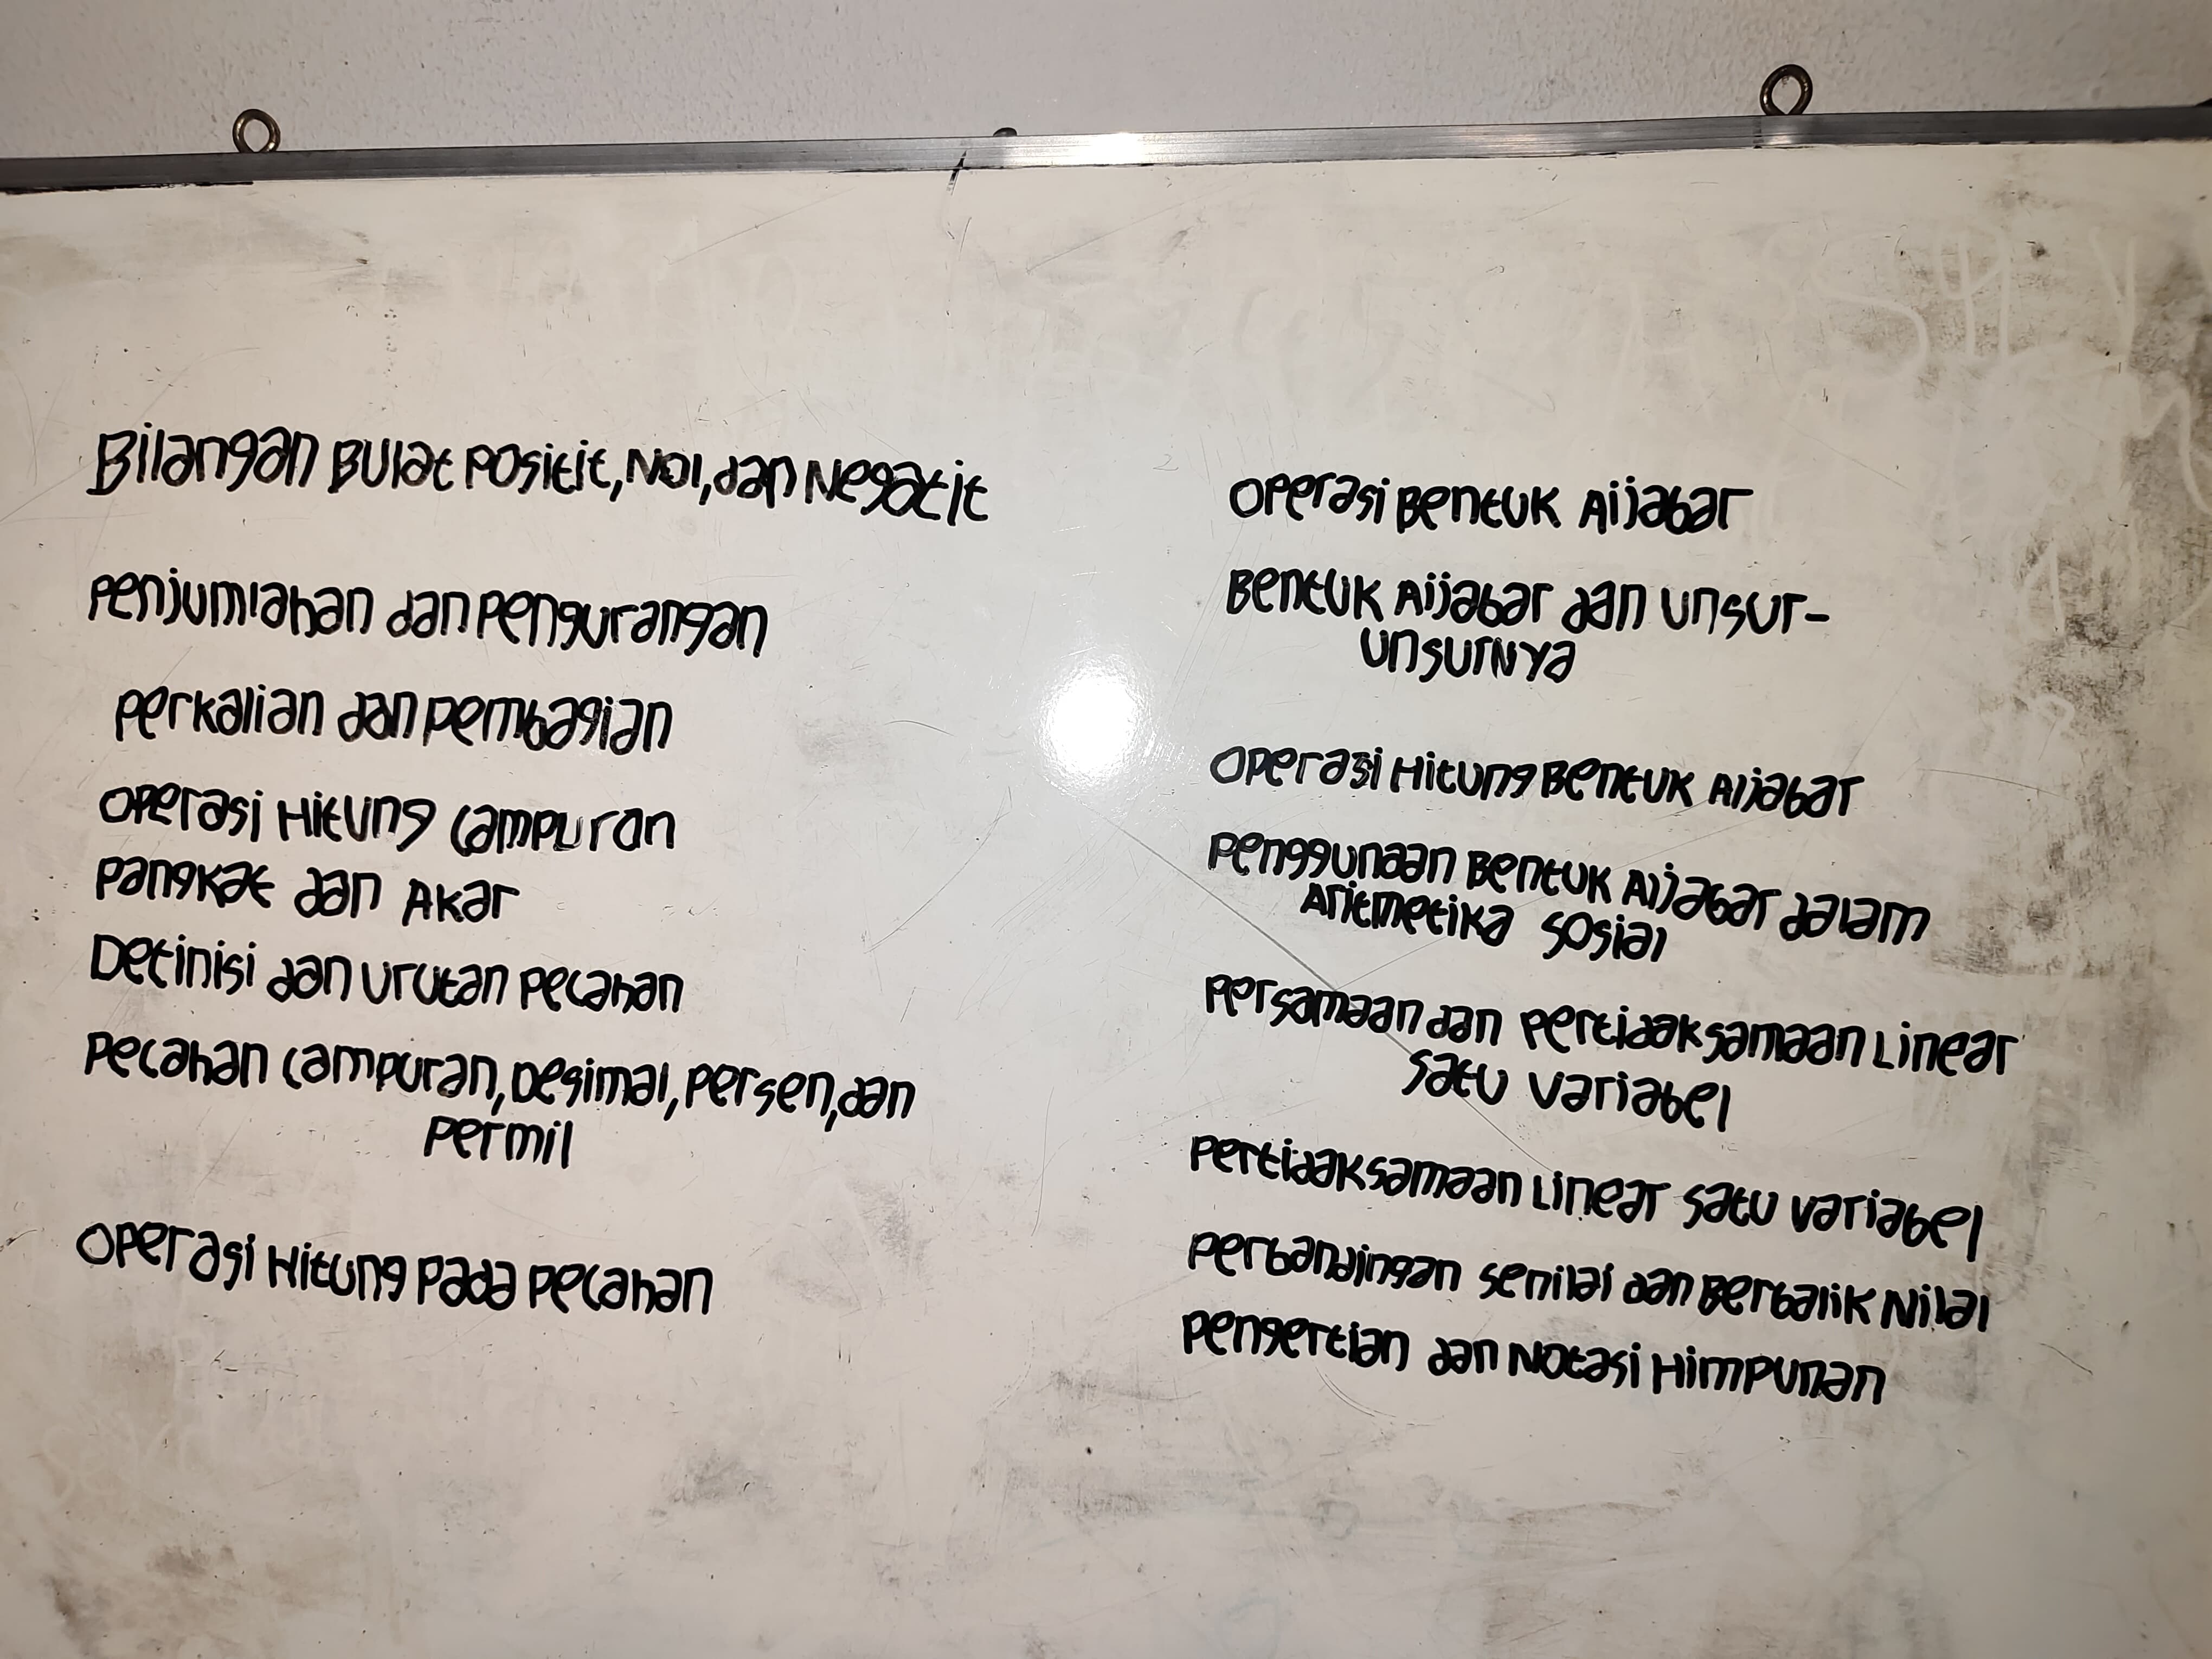 Bilangan Bulat Positif, Nol, dan Negatif
Penjumlahan dan Pengurangan
Perkalian dan Pembagian
Operasi Hitung Campuran
Pangkat dan Akar
Definisi dan Urutan Pecahan
Pecahan Campuran, Desimal, Persen, dan
Permil
Operasi Hitung Pada Pecahan
Operasi Bentuk Aljabar
Bentuk Aljabar dan Unsur-
Unsurnya
Operasi Hitung Bentuk Aljabar
Penggunaan Bentuk Aljabar dalam
Aritmetika Sosial
Persamaan dan Pertidaksamaan Linear
Satu Variabel
Pertidaksamaan Linear Satu Variabel
Perbandingan Senilai dan Berbalik Nilai
Pengertian dan Notasi Himpunan